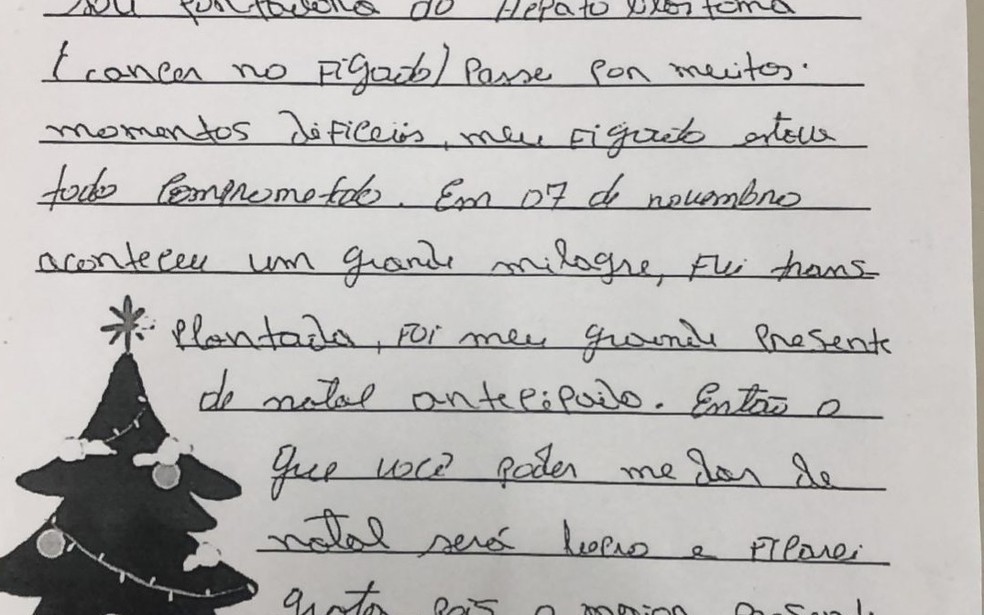 sou portadora do Hepato blastoma
(cancer no Figado) Passe por muitos
momentos dificeis, meu Figado estava
todo comprometido. Em 07 de novembro
aconteceu um grande milagre, Fui trans
Plantada, Foi meu grande Presente
de natal antecipado. Então o
que você poder me dar de
natal será lucro e Ficarei
grata pois o maior presente